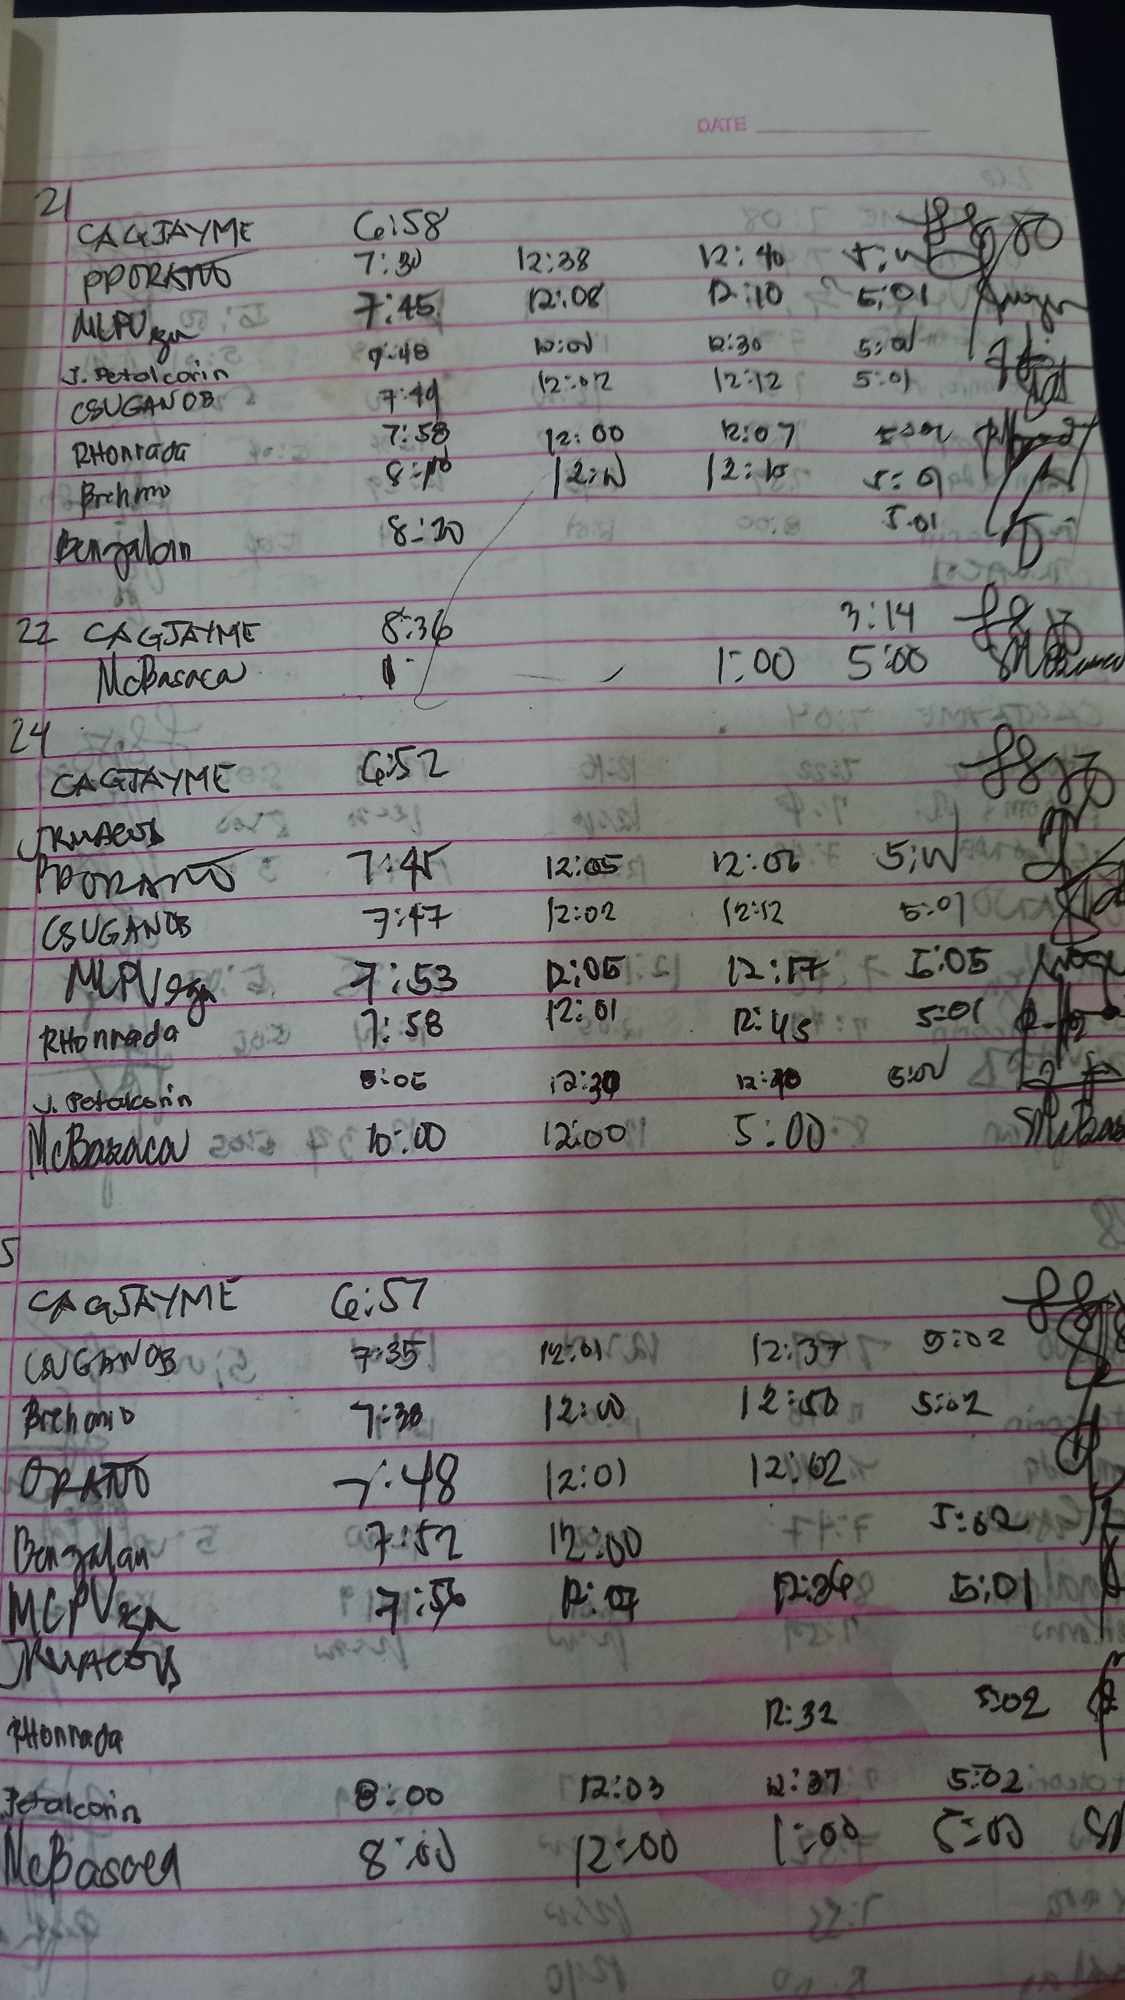 DATE
21
CAGJAYME 6:58
PPORANO 7:30 12:38 12:40 5:00
MLPVegn 7:45 12:08 12:10 5:01
J. Petalcorin 7:48 12:01 12:30 5:01
CSUGANOB 7:49 12:02 12:12 5:01
RHonrada 7:58 12:00 12:07
Brehmo 12:00 12:10 5:01
Bengalan 8:20 5:01
22 CAGJAYME 8:36 3:14
McBasaca 1:00 5:00
24
CAGJAYME 6:52
JRMACOB
PPORANO 7:45 12:05 12:06 5:00
CSUGANOB 7:47 12:02 12:12 5:01
MLPVegn 7:53 12:05 12:17 5:05
RHonrada 7:58 12:01 12:45 5:01
J. Petalcorin 8:05 12:30
McBasaca 10:00 12:00 5:00
5
CAGJAYME 6:57
CSUGANOB 7:35 12:01 12:37 5:02
Brehmo 7:38 12:00 12:50 5:02
ORANO 7:48 12:01 12:02
Bengalan 7:52 12:00 5:02
MCPVegn 7:56 12:07 12:36 5:01
JRMACOB
RHonrada 12:32 5:02
Petalcorin 8:00 12:03 12:37 5:02
McBasaca 8:00 12:00 1:00 5:00